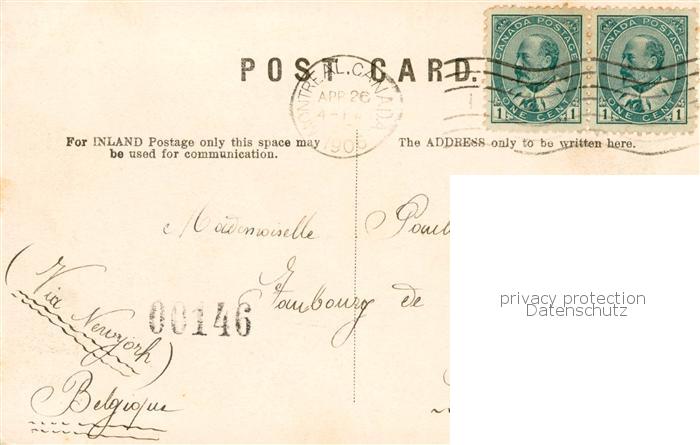 CANADA POSTAGE CANADA POSTAGE
ONE CENT ONE CENT
1 1 1 1
POST CARD.
MONTREAL, CANADA
APR 26
190
For INLAND Postage only this space may
be used for communication.
The ADDRESS only to be written here.
Mademoiselle
Faubourg de
(Via
Newyork)
00146
Belgique
privacy protection
Datenschutz